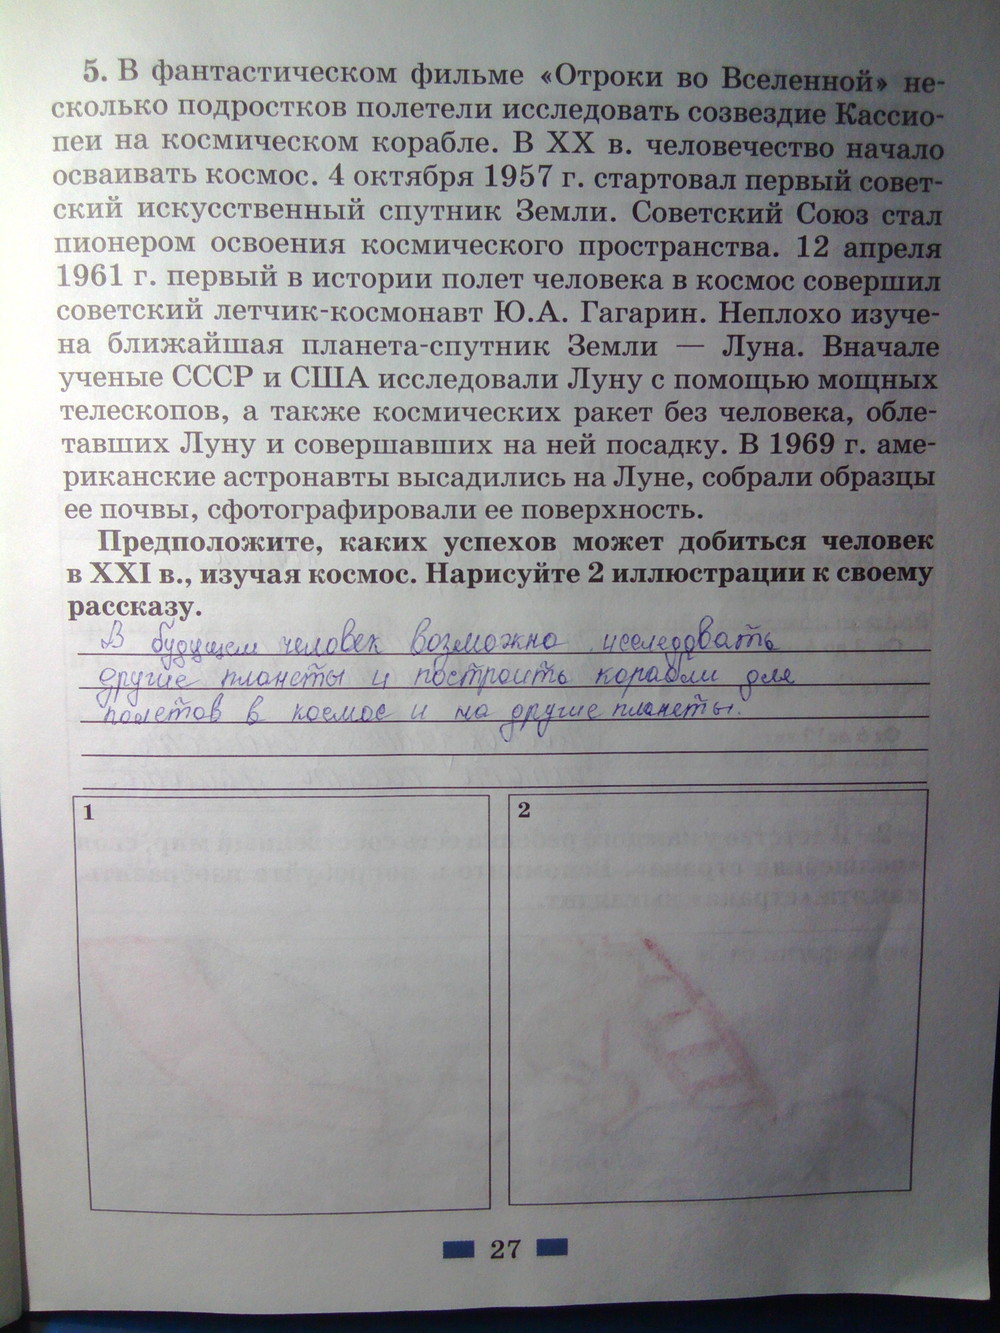 5. В фантастическом фильме «Отроки во Вселенной» не-
сколько подростков полетели исследовать созвездие Кассио-
пеи на космическом корабле. В XX в. человечество начало
осваивать космос. 4 октября 1957 г. стартовал первый совет-
ский искусственный спутник Земли. Советский Союз стал
пионером освоения космического пространства. 12 апреля
1961 г. первый в истории полет человека в космос совершил
советский летчик-космонавт Ю.А. Гагарин. Неплохо изуче-
на ближайшая планета-спутник Земли — Луна. Вначале
ученые СССР и США исследовали Луну с помощью мощных
телескопов, а также космических ракет без человека, обле-
тавших Луну и совершавших на ней посадку. В 1969 г. аме-
риканские астронавты высадились на Луне, собрали образцы
ее почвы, сфотографировали ее поверхность.
Предположите, каких успехов может добиться человек
в XXI в., изучая космос. Нарисуйте 2 иллюстрации к своему
рассказу.
В будущем человек возможно исследовать
другие планеты и построить корабли для
полетов в космос и на другие планеты.
1
2
27